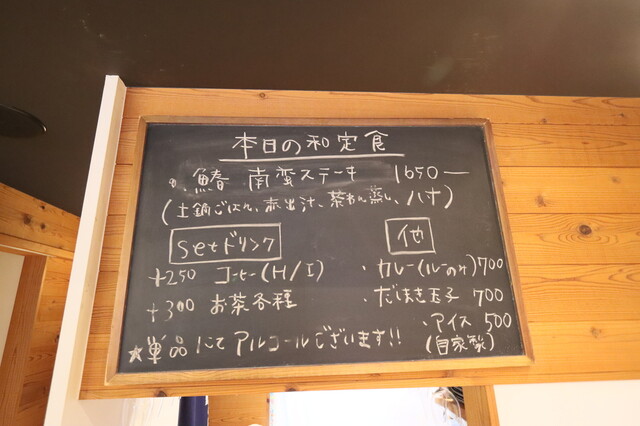 本日の和定食
鰆 南蛮ステーキ 1650ー
(土鍋ごはん、赤出汁、茶わん蒸し、八寸)
setドリンク
+250 コーヒー(H/I)
+300 お茶各種
他
・カレー(ルーのみ) 700
・だしまき玉子 700
・アイス 500
(自家製)
★単品にてアルコールございます!!